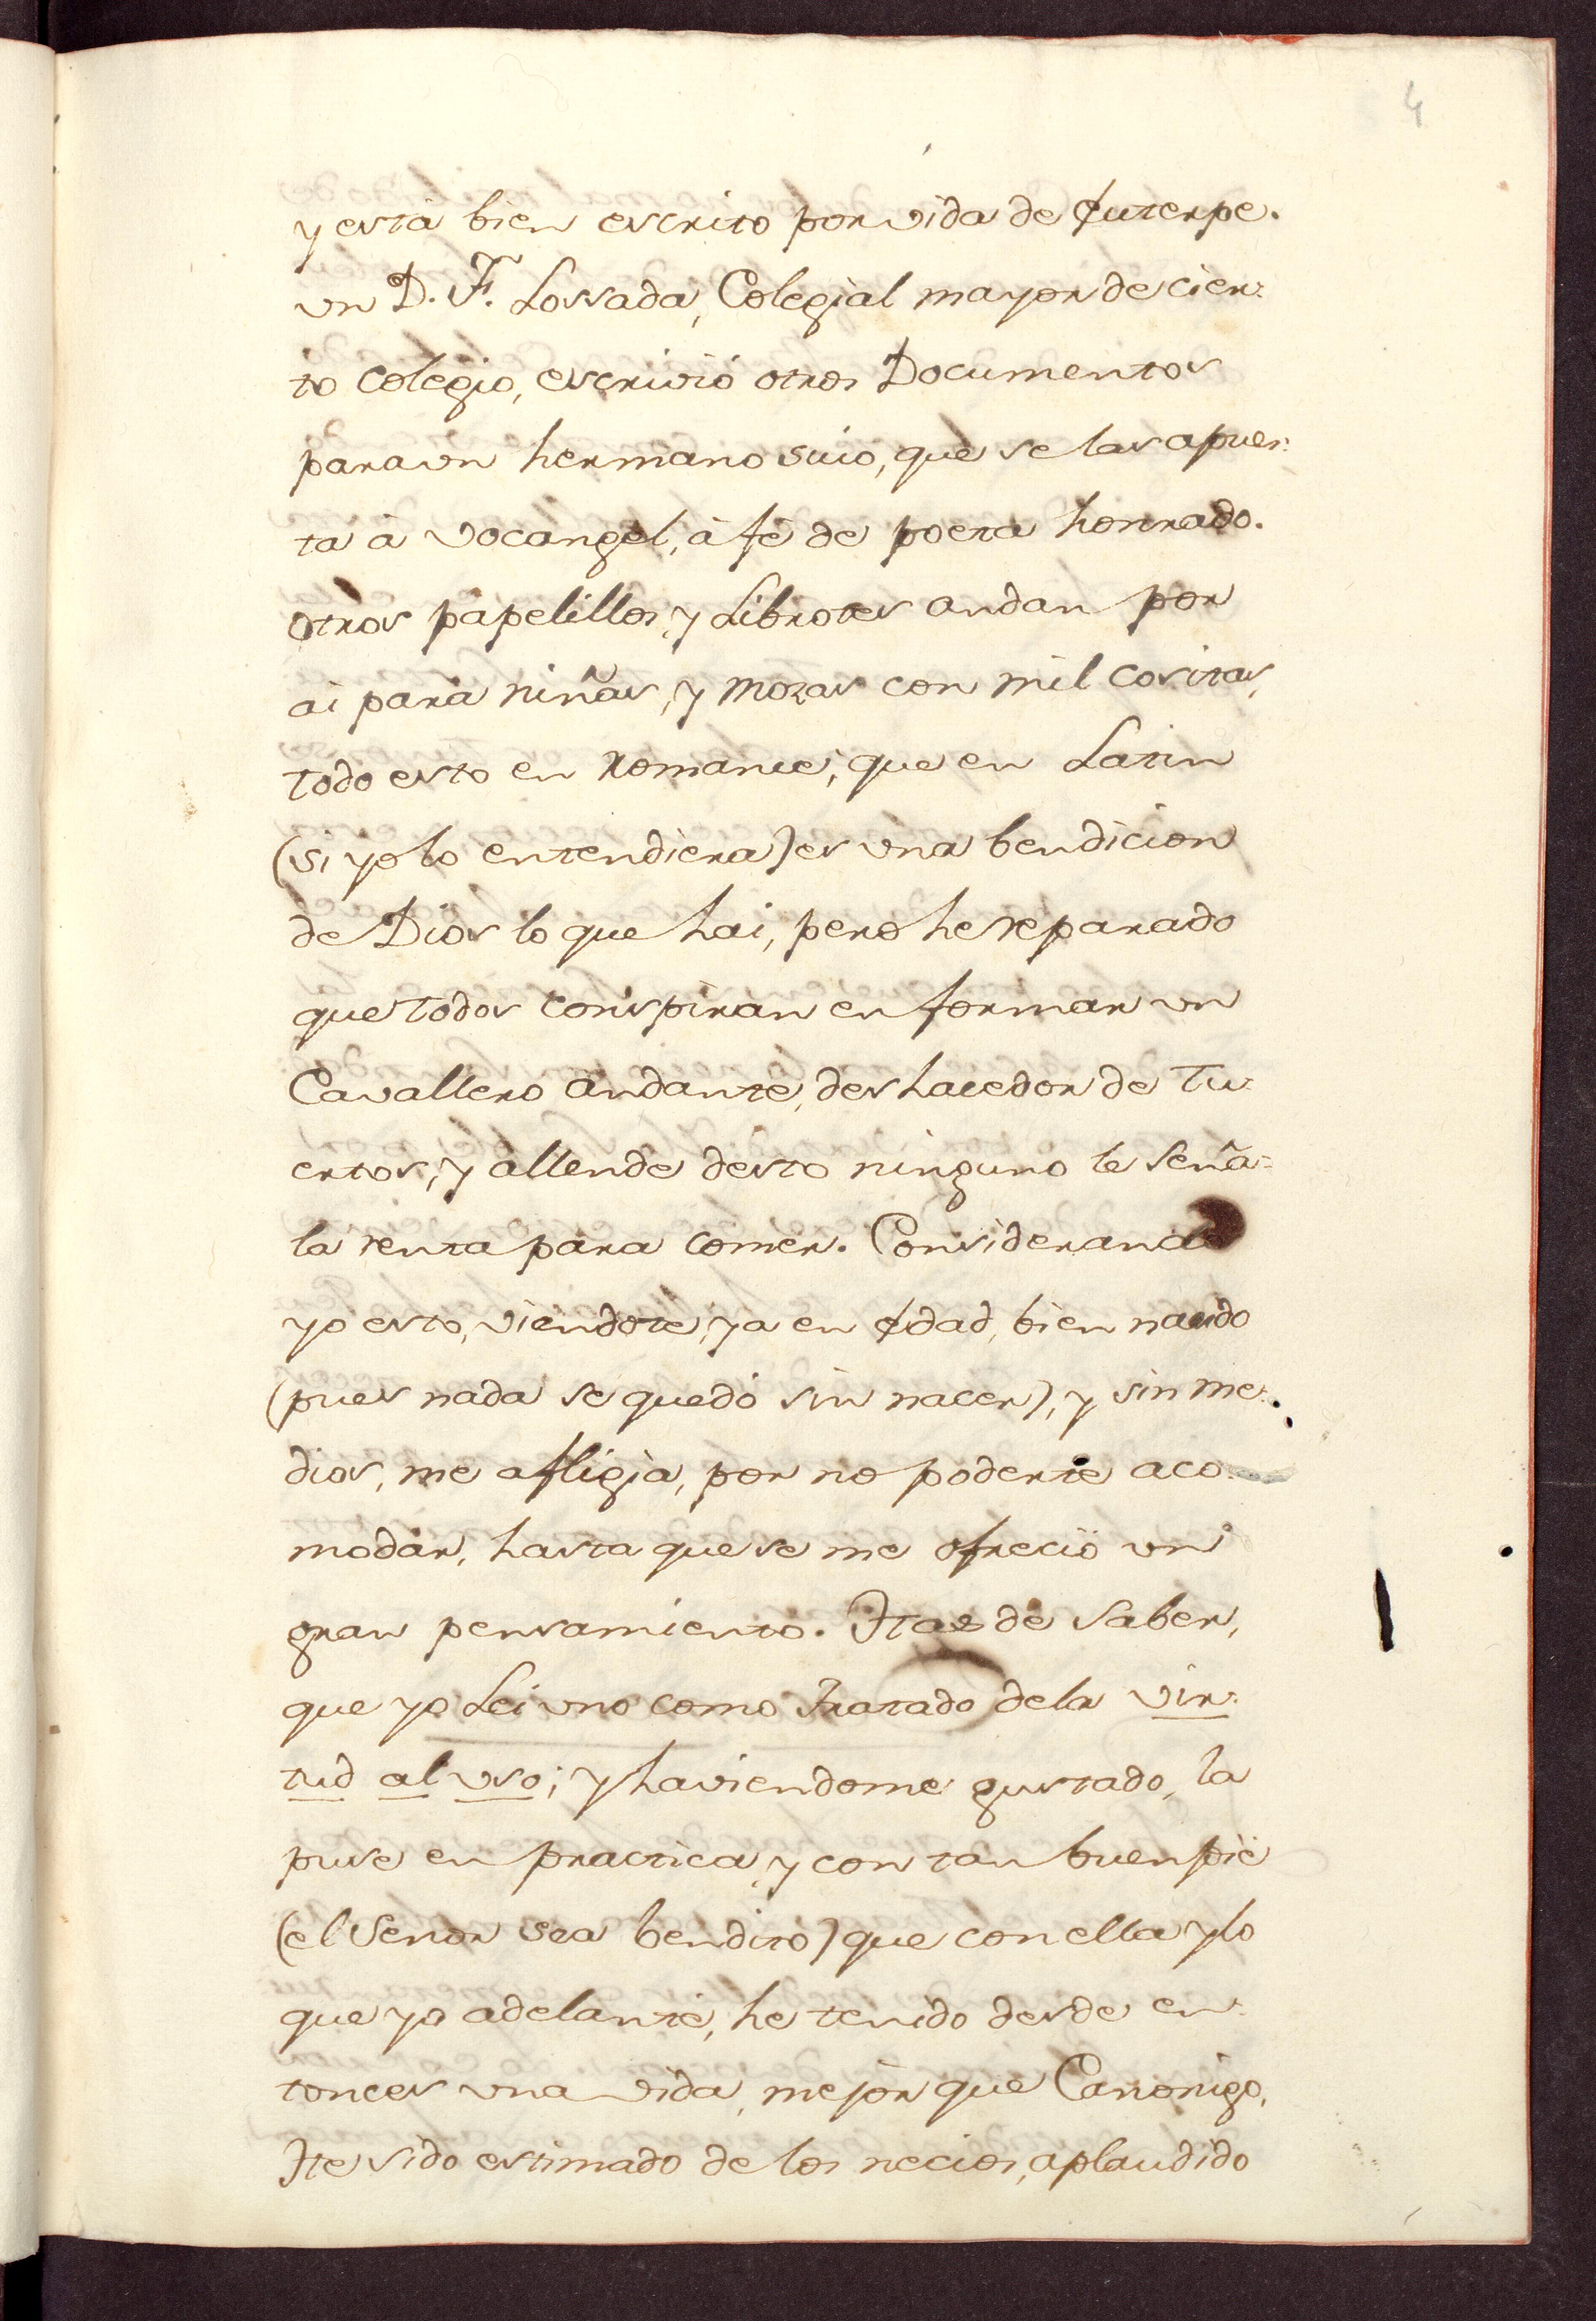 4
y està bien escrito por vida de Euterpe.
vn D. F. Lossada, Colegial mayor de cier-
to Colegio, escrivió otros Documentos
para vn hermano suio, que se las apues-
ta à Vocangel, à fè de poeta honrado.
otros papelillos, y Librotes andan por
ai para niñas, y mozas con mil cositas,
todo esto en Romance; que en Latin
(si yo lo entendiera) es vna bendicion
de Dios lo que hai, pero he reparado
que todos conspiran en formar vn
Cavallero andante, deshacedor de Tu-
ertos, y allende desto ninguno le seña-
la renta para comer. Considerando
yo esto, viendote, ya en edad, bien nacido
(pues nada se quedó sin nacer), y sin me-
dios, me afligia, por no poderte aco-
modar, hasta que se me ofreciò vn
gran pensamiento. Has de saber,
que yo Lei vno como Tratado de la vir-
tud al vso; y haviendome gustado, la
puse en practica, y con tan buen piè
(el Señor sea bendito) que con ella y lo
que yo adelantè, he tenido desde en-
tonces vna vida, mejor que Canonigo,
He sido estimado de los necios, aplaudido